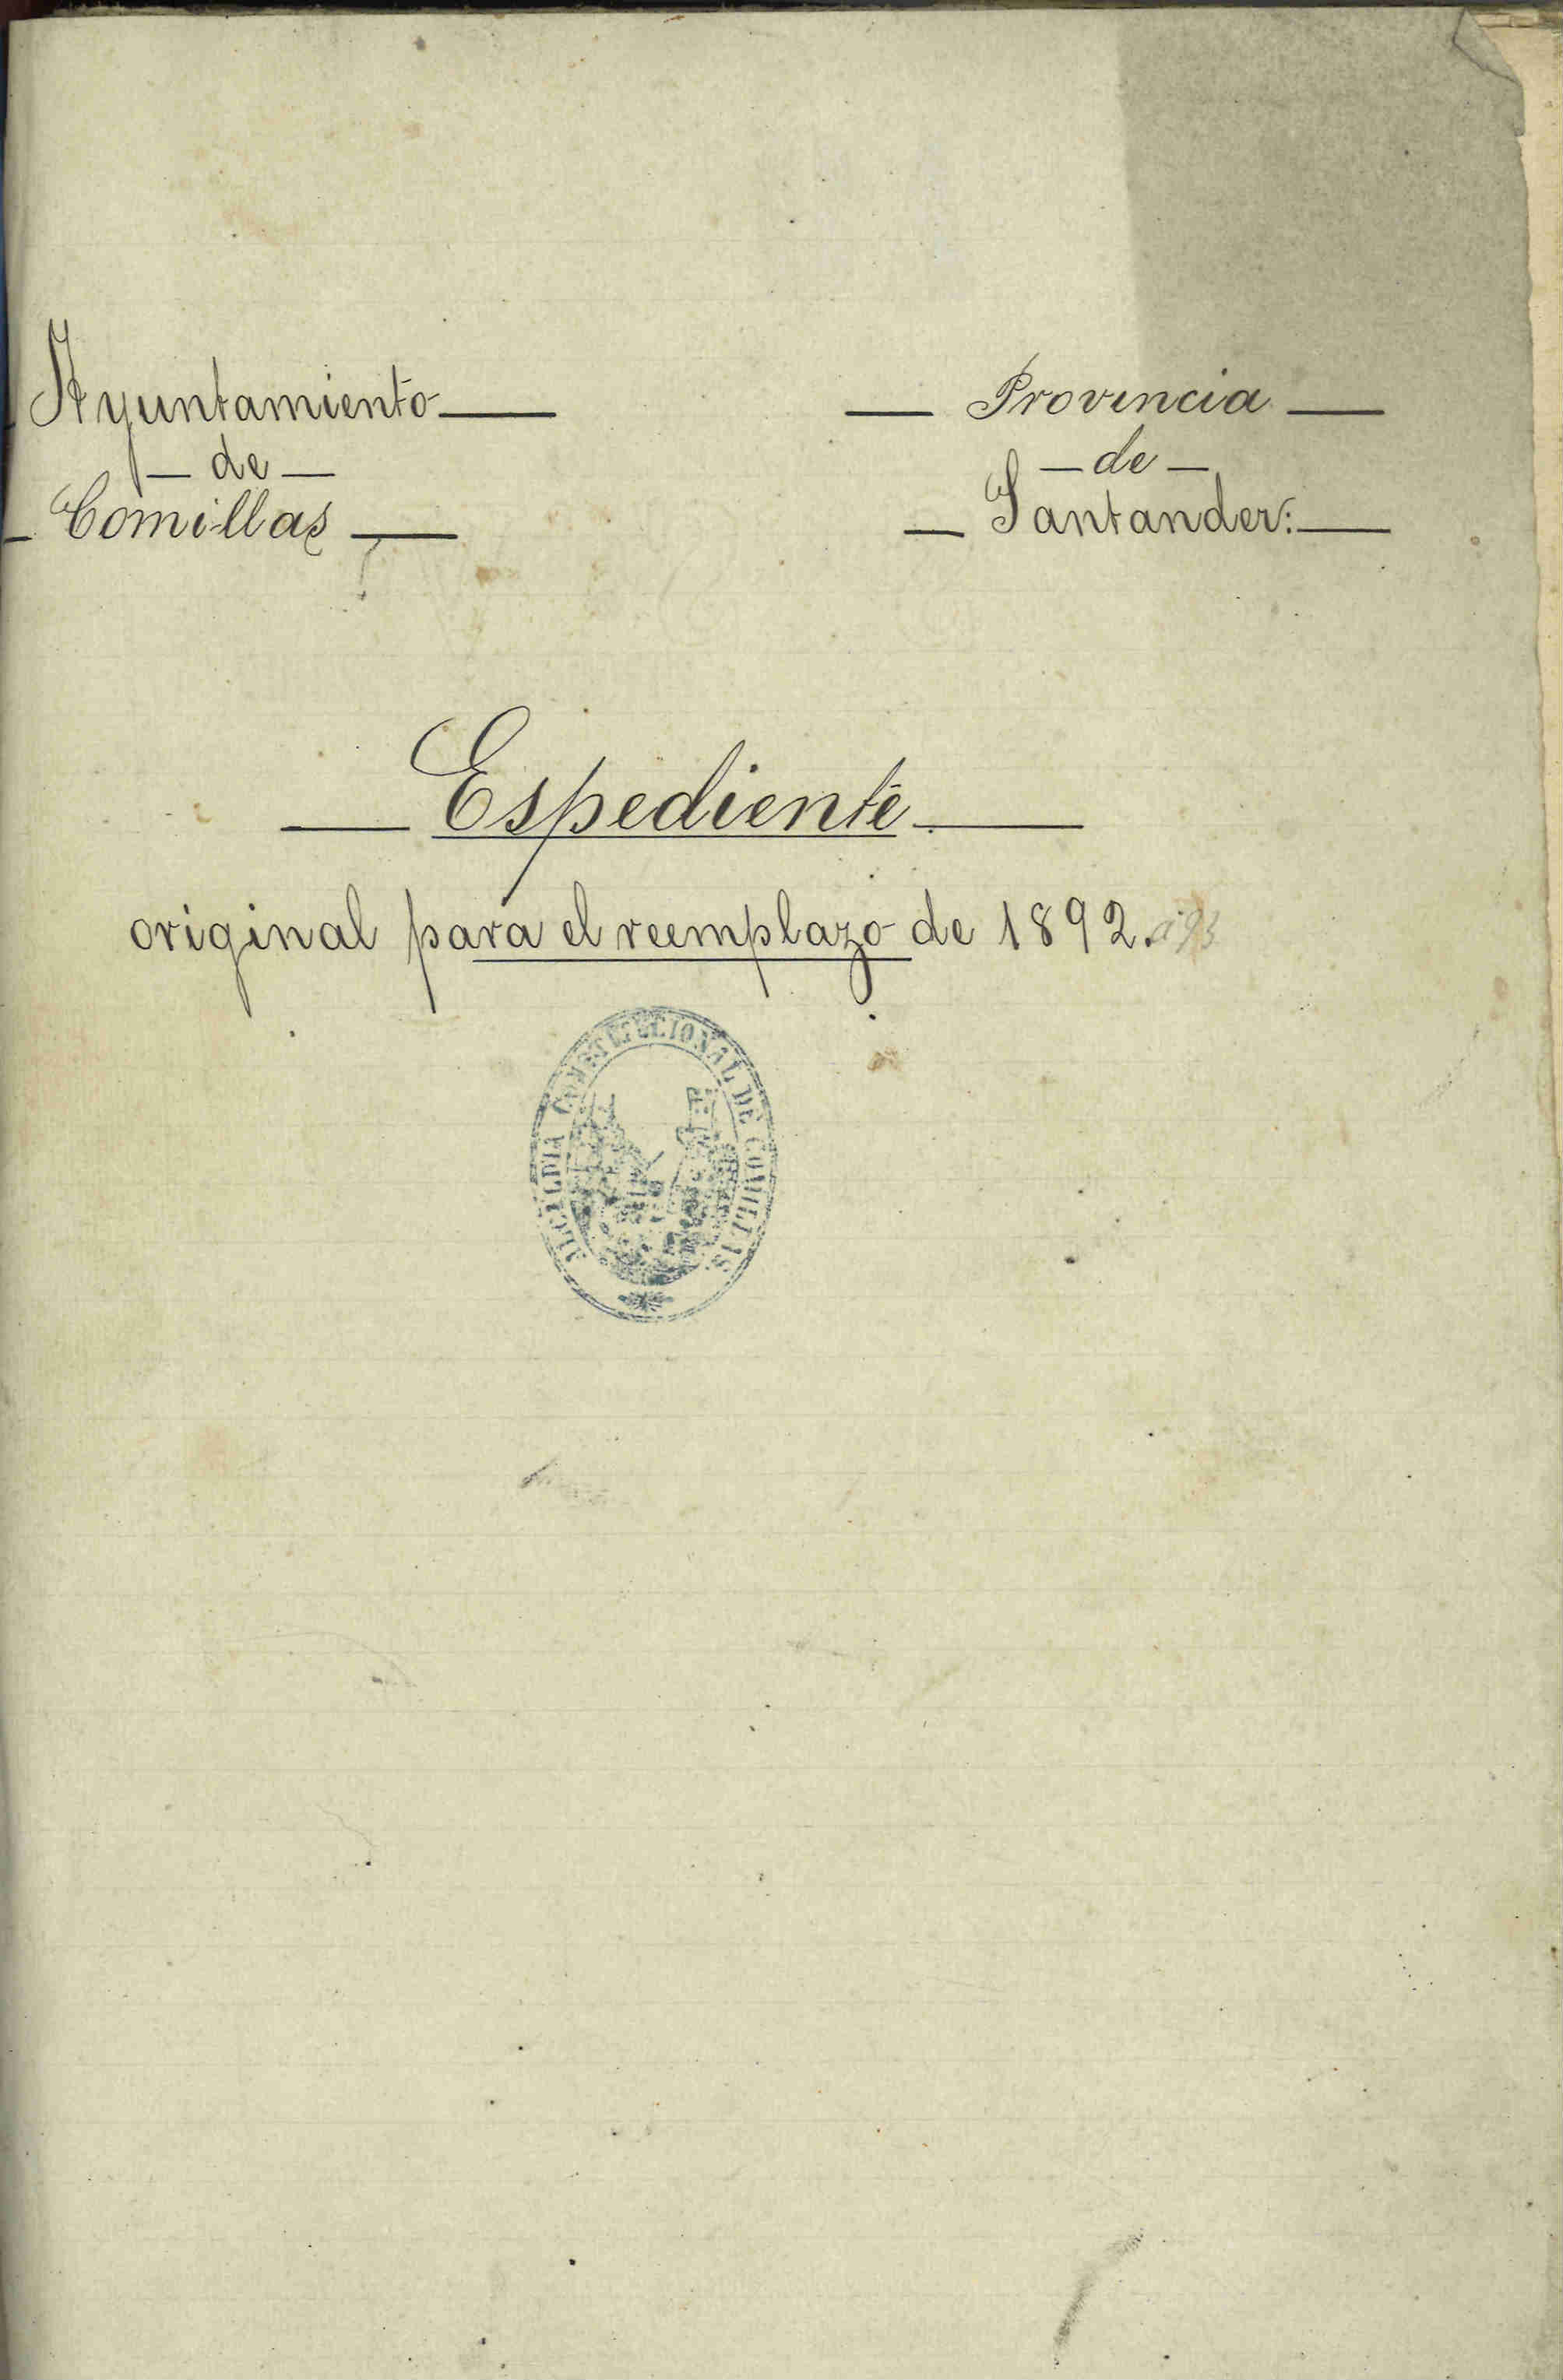 Ayuntamiento
— de —
— Comillas —
— Provincia —
— de —
— Santander: —
— Espediente —
original para el reemplazo de 1892. á 93
ALCALDIA CONSTITUCIONAL DE COMILLAS